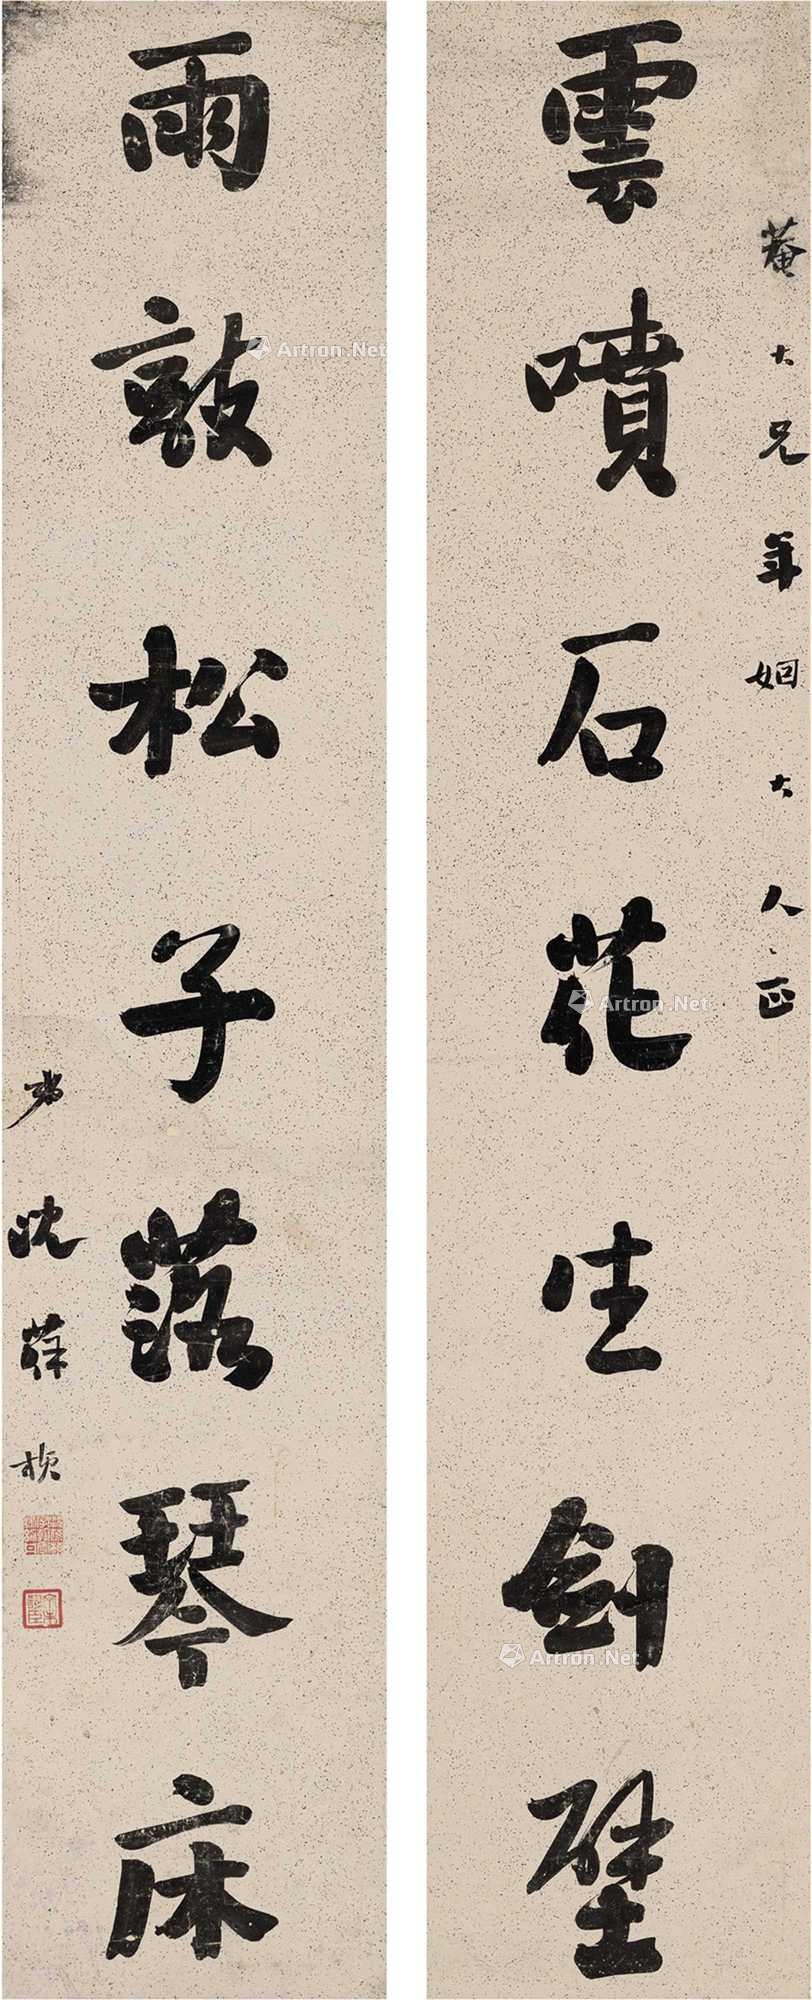 菴大兄年姻大人正
雲噴石花生劍壁
雨敲松子落琴床
弟沈葆楨
Artron.Net
Artron.Net
Artron.Net